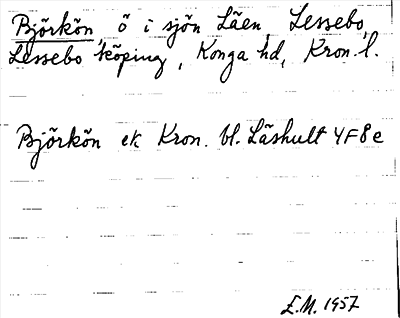 Björkön, ö i sjön Läen, Lessebo,
Lessebo köping, Konga hd, Kron. l.
Björkön ek Kron. bl. Läshult 4F8e
L.M. 1957